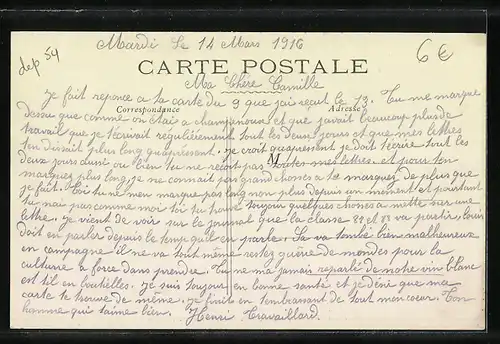 Mardi le 14 Mars 1916
6€
dep 54
CARTE POSTALE
Ma Chère Camille
Correspondance
Adresse
Je fait reponce a ta carte du 9 que jais reçut le 13. Tu me marque
dessu que comme on étais a champenoux et que javait beaucoup plus de
travail que je técrivait regulièrement tout les deux jours et que mes lettres
en dissait plus long quapressent. je croit quapressent je doit técrire tout les
deux jours aussi ou bien tu ne reçoit pas toutes mes lettres. et pour ten
marquer plus long, je ne connait pas grand choses a te marquez de plus que
je fait. Toi tu ne men marque pas long non plus depuis un moment et pourtant
tu nai pas comme moi toi tu trouve toujour quelques choses a mettre sur une
lettre. je vient de voir sur le journal que la classe 88 et 89 va partir, Louis
doit en parler depuis le temp quil en parle. Sa va tombé bien malheureux
en campagne il ne va tout même restez guère de mondes pour la
culture a force dans prendre. Tu ne ma jamais reparlé de notre vin blanc
est til en bouteilles. je suis toujour en bonne santé et je désire que ma
carte te trouve de même. je finit en tembrassant de tout mon coeur. Ton
homme qui taime bien. Henri Travaillard.